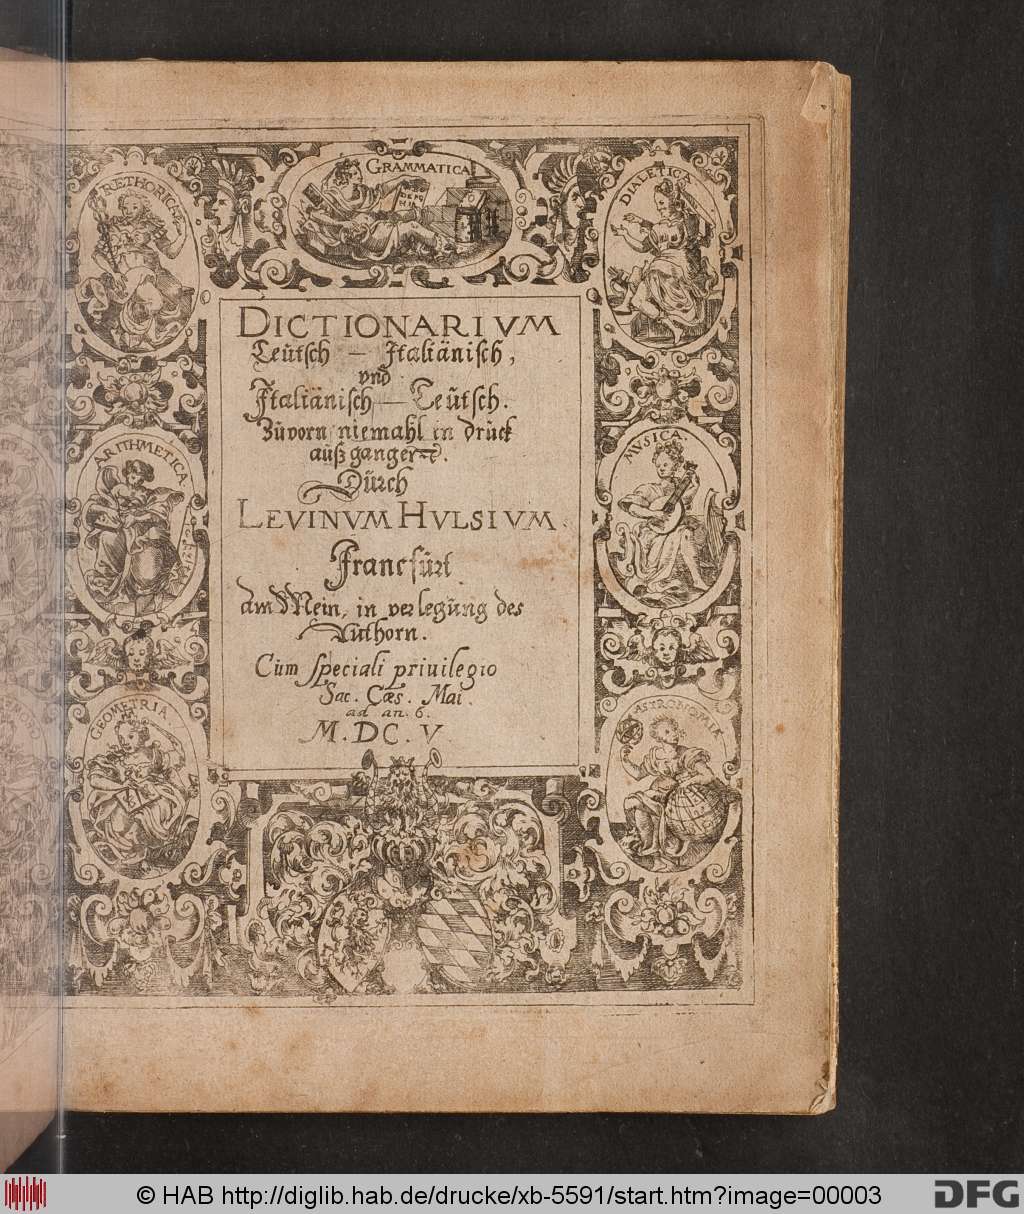 GRAMMATICA
RETHORICA
DIALETICA
DICTIONARIVM
Teütsch – Italiänisch,
vnd
Italiänisch — Teütsch.
Züvorn niemahl in drück
außgangen.
Dürch
LEVINVM HVLSIVM
Francfürt
am Mein, in verlegüng des
Authorn.
Cüm speciali priuilegio
Sac. Cæs. Mai.
ad an. 6.
M.DC.V
ARITHMETICA
MVSICA.
GEOMETRIA.
ASTRONOMIA
© HAB http://diglib.hab.de/drucke/xb-5591/start.htm?image=00003
DFG